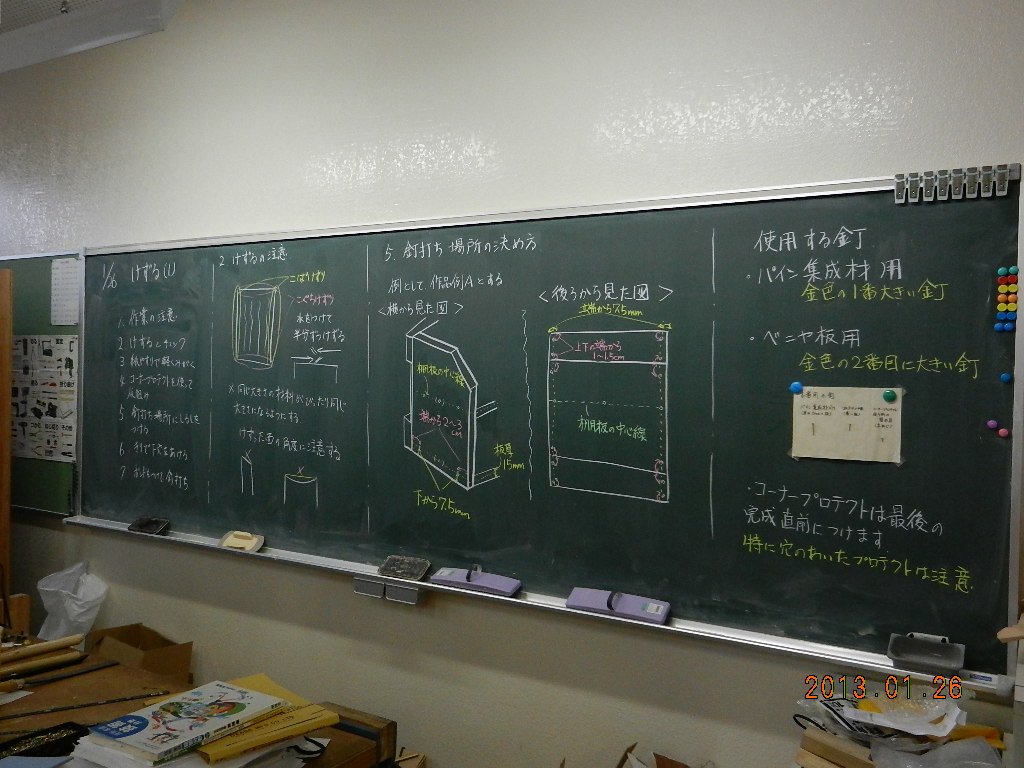 1/26 けずる(1)
1. 作業の注意
2 けずるとチェック
3 紙やすりで軽くみがく
4 コーナープロテクトを使って
仮組み
5 釘打ち場所にしるしを
つける
6 きりで下穴をあける
7 釘打ち
2 けずるの注意
こばけずり
こぐちけずり
水をつけて
半分ずつけずる
※ 同じ大きさの材料がぴったり同じ
大きさになるようにする
けずった面の角度に注意する
5. 釘打ち場所の決め方
例として、作品例Aとする
<横から見た図>
棚板の中心線
端から2~3
cm
板厚
15mm
下から7.5mm
<後ろから見た図>
端から7.5mm
上下の端から
1~1.5cm
棚板の中心線
使用する釘
・パイン集成材用
金色の1番大きい釘
・ベニヤ板用
金色の2番目に大きい釘
パイン集成材用
・コーナープロテクトは最後の
完成直前につけます
特に穴のあいたプロテクトは注意
2013.01.26